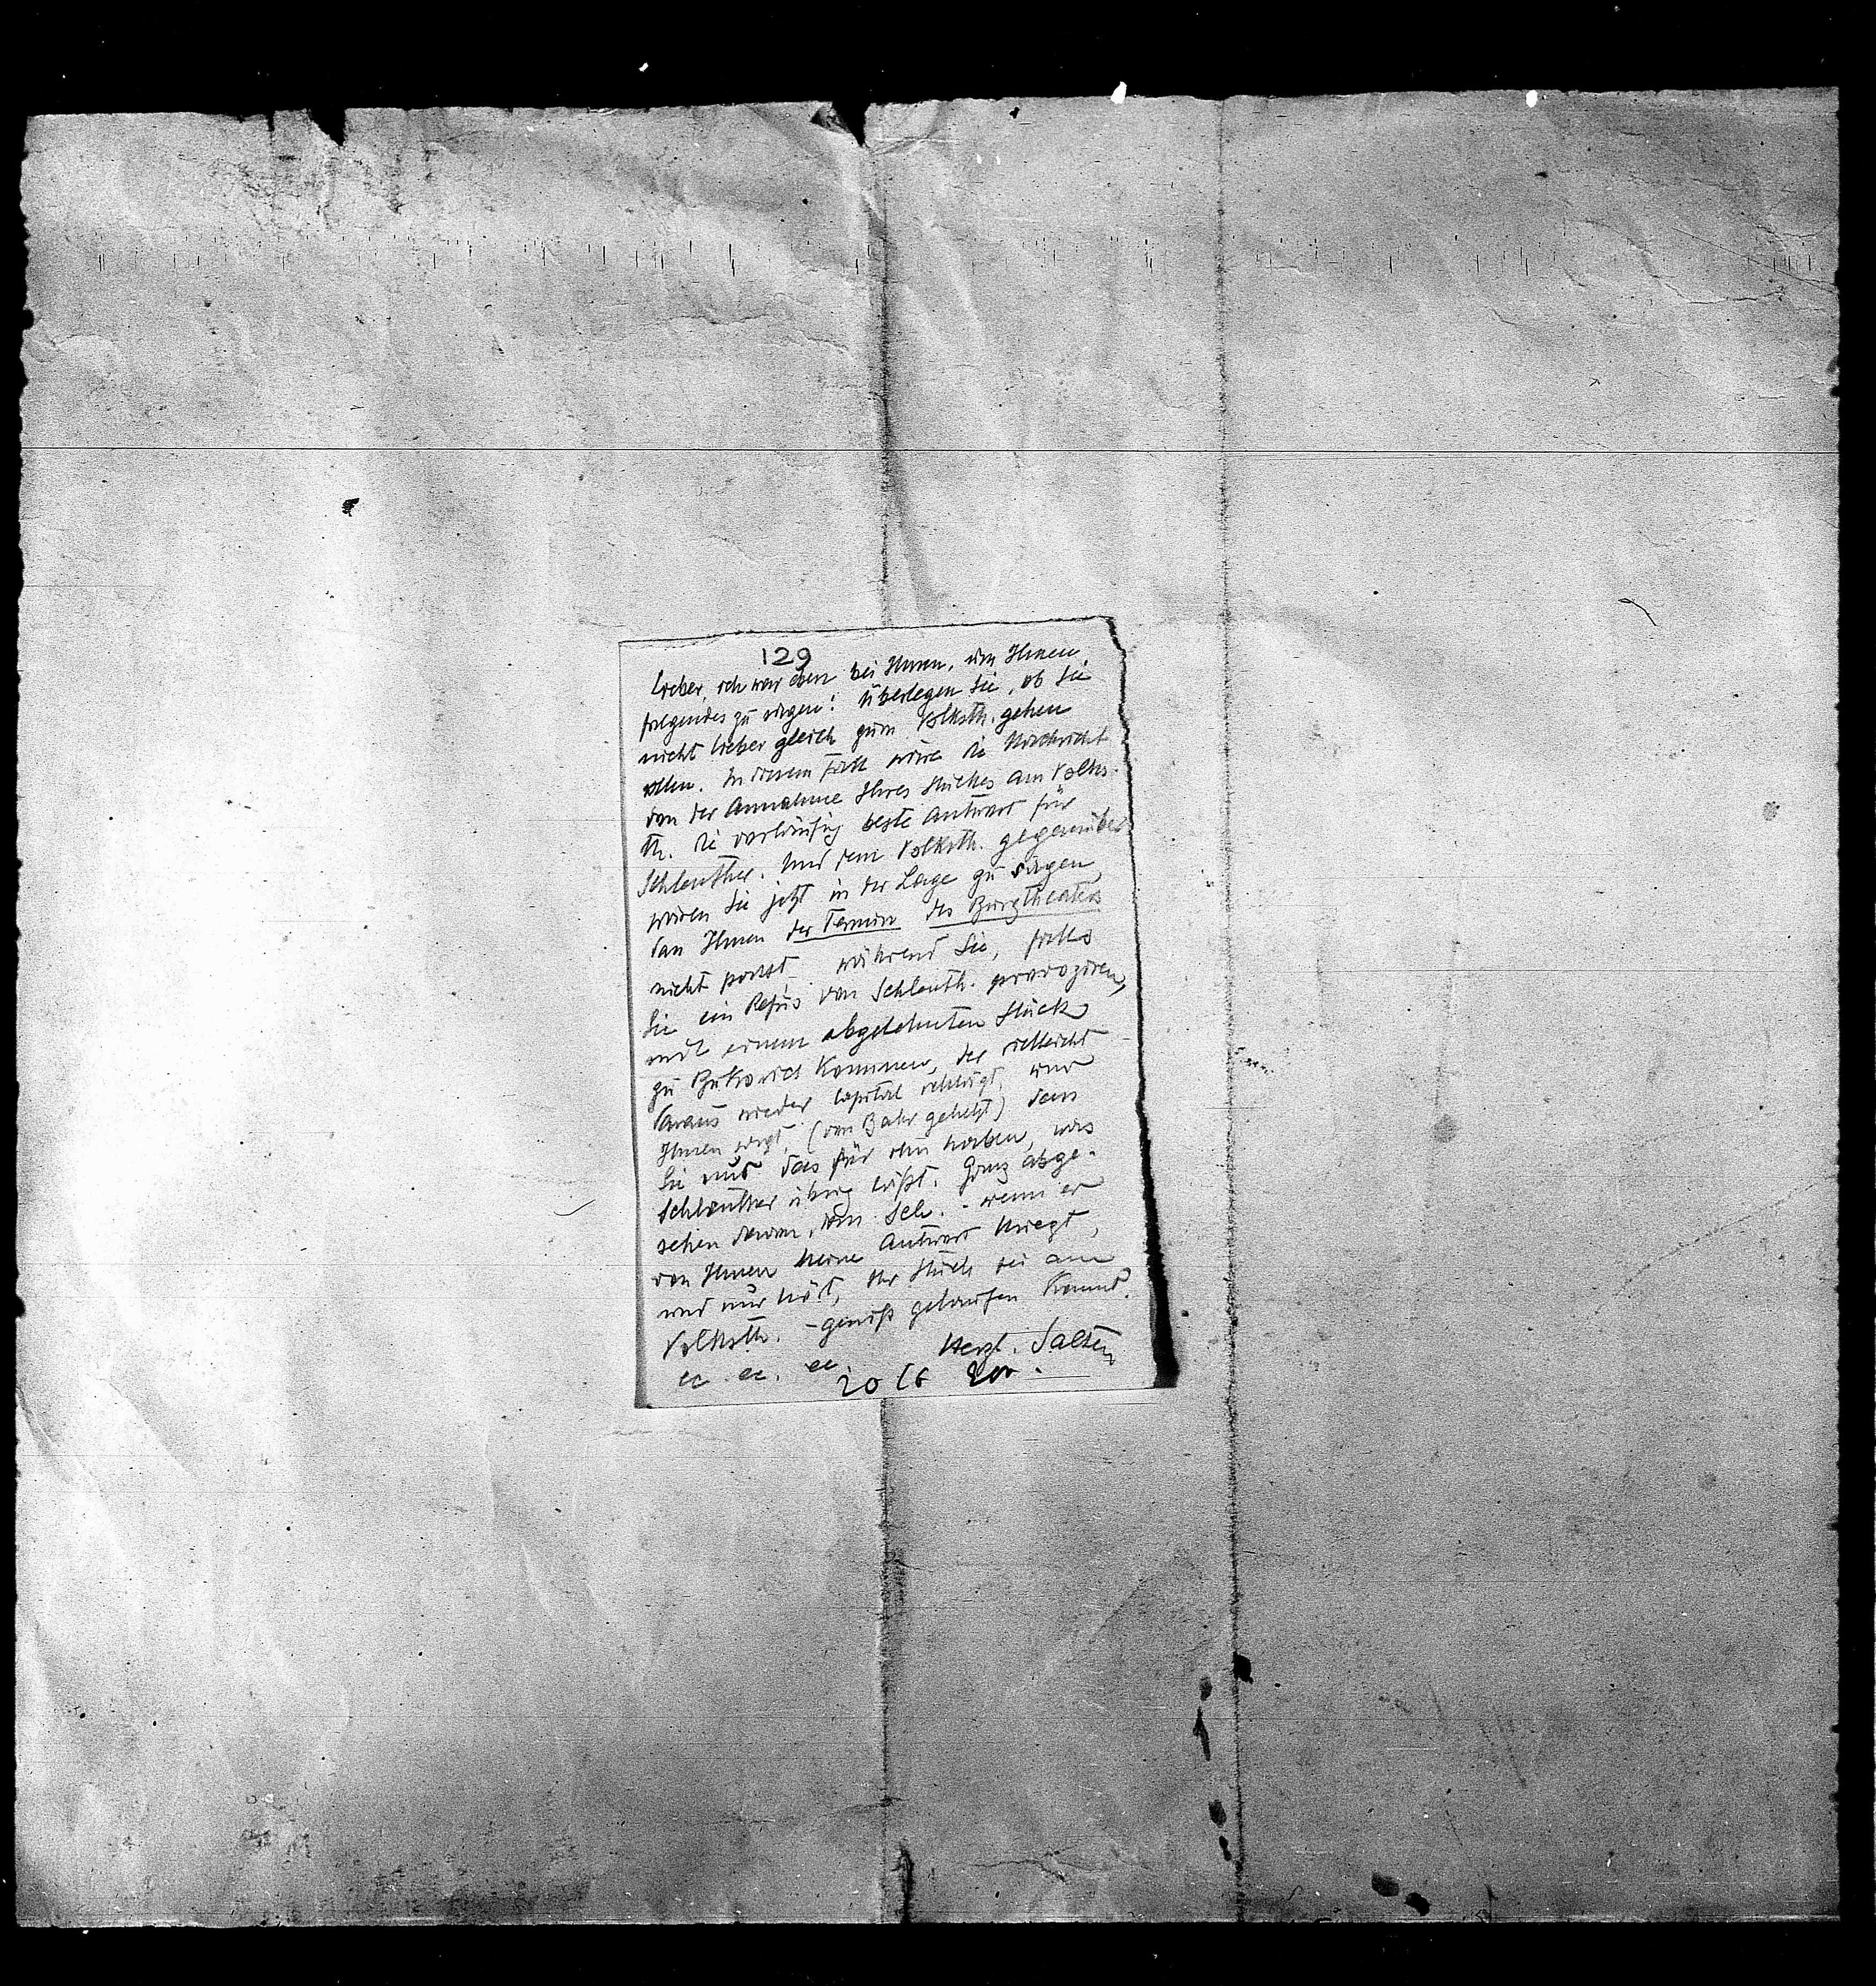 129
Lieber, ich war eben bei Ihnen, um Ihnen
folgendes zu sagen: Überlegen Sie, ob Sie
nicht lieber gleich zum Volksth. gehen
sollen. In diesem Fall wäre die Nachricht
von der Annahme Ihres Stückes am Volks-
th. die vorläufig beste Antwort für
Schlenther. Und dem Volksth. gegenüber
wären Sie jetzt in der Lage zu sagen,
dass Ihnen der Termin des Burgtheaters
nicht passt, während Sie, falls
Sie ein Refus von Schlenth. provoziren,
mit einem abgelehnten Stück
zu Bukovics kommen, der vielleicht
daraus wieder Capital schlägt, und
Ihnen sagt, (von Bahr gehetzt) dass
Sie nur das für ihn haben, was
Schlenther übrig läßt. Ganz abge-
sehen davon, dass Sch. - wenn er
von Ihnen keine Antwort kriegt,
und nur hört, Ihr Stück sei am
Volksth. - gewiß gelaufen kommt.
ec. ec. ec.
Herzl. Salten